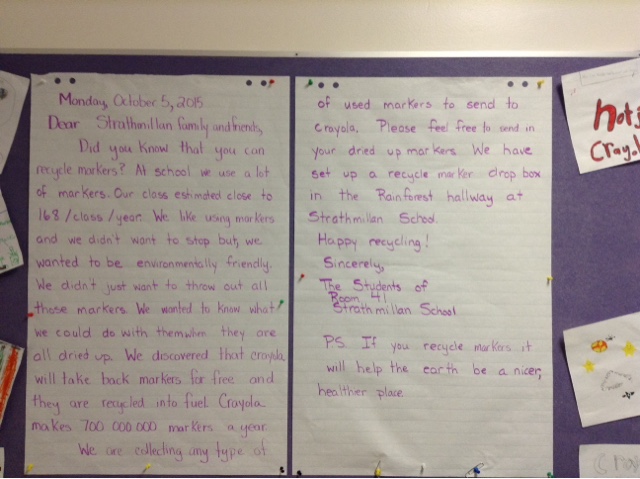 Monday, October 5, 2015
Dear Strathmillan family and friends,
Did you know that you can
recycle markers? At school we use a lot
of markers. Our class estimated close to
168/class/year. We like using markers
and we didn't want to stop but, we
wanted to be environmentally friendly.
We didn't just want to throw out all
those markers. We wanted to know what
we could do with them when they are
all dried up. We discovered that crayola
will take back markers for free and
they are recycled into fuel. Crayola
makes 700 000 000 markers a year.
We are collecting any type of
of used markers to send to
Crayola. Please feel free to send in
your dried up markers. We have
set up a recycle marker drop box
in the Rainforest hallway at
Strathmillan School.
Happy recycling!
Sincerely,
The Students of
Room 41
Strathmillan School
PS. If you recycle markers it
will help the earth be a nicer,
healther place.
Crayol